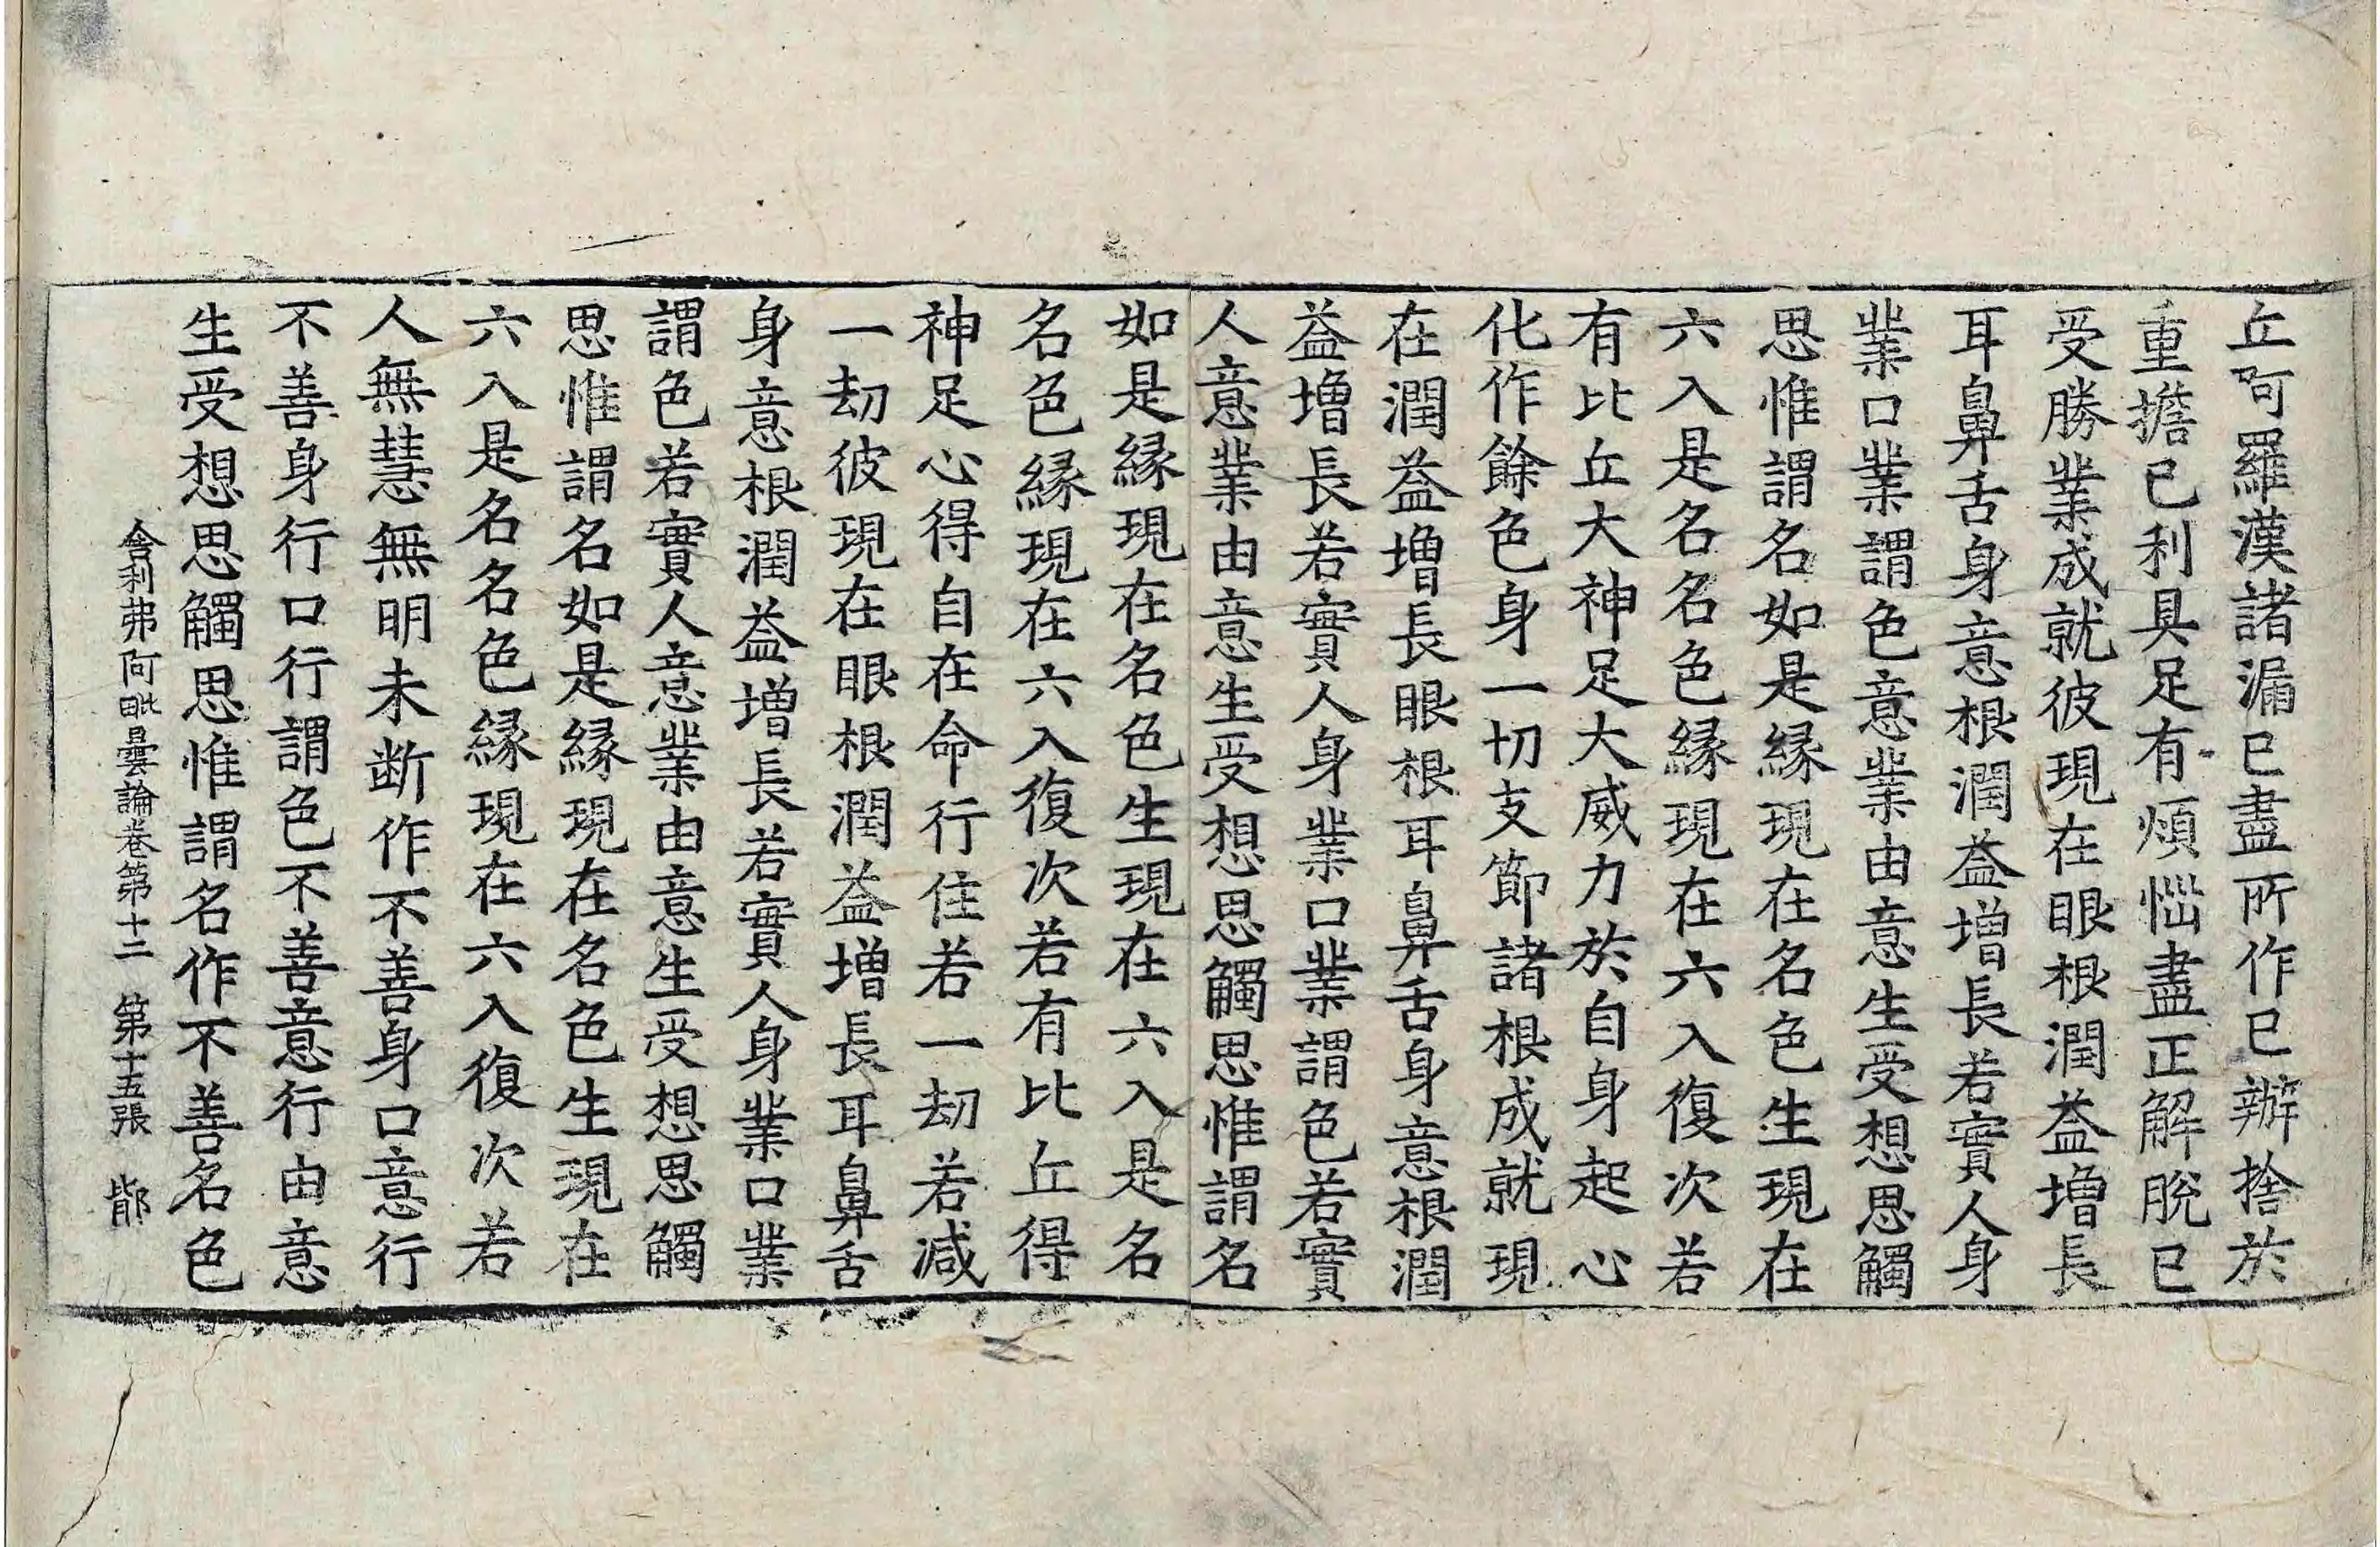 丘阿羅漢諸漏已盡所作已辦捨於
重擔已利具足有煩惱盡正解脫已
受勝業成就彼現在眼根潤益增長
耳鼻舌身意根潤益增長若實人身
業口業謂色意業由意生受想思觸
思惟謂名如是緣現在名色生現在
六入是名名色緣現在六入復次若
有比丘大神足大威力於自身起心
化作餘色身一切支節諸根成就現
在潤益增長眼根耳鼻舌身意根潤
益增長若實人身業口業謂色若實
人意業由意生受想思觸思惟謂名
如是緣現在名色生現在六入是名
名色緣現在六入復次若有比丘得
神足心得自在命行住若一劫若減
一劫彼現在眼根潤益增長耳鼻舌
身意根潤益增長若實人身業口業
謂色若實人意業由意生受想思觸
思惟謂名如是緣現在名色生現在
六入是名名色緣現在六入復次若
人無慧無明未断作不善身口意行
不善身行口行謂色不善意行由意
生受想思觸思惟謂名作不善名色
舍利弗阿毗曇論卷第十二　第十五張